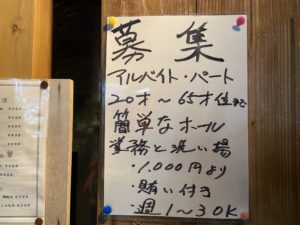 募集
アルバイト・パート
20才～65才位まで
簡単なホール
業務と洗い場
・1,000円より
・賄い付き
・週1～3OK